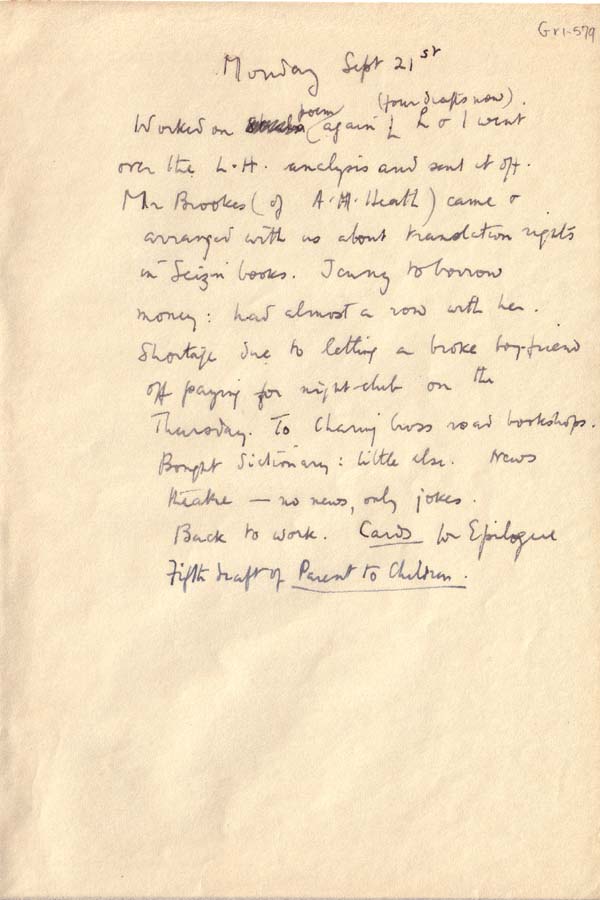 Gr1-579
Monday Sept 21st
poem (four drafts now).
Worked on again L & I went
over the L.H. analysis and sent it off.
Mr Brookes (of A.M. Heath) came &
arranged with us about translation rights
in Seizin books. Jenny to borrow
money: had almost a row with her.
Shortage due to letting a broke boy-friend
off paying for night-club on the
Thursday. To Charing Cross road bookshops.
Bought Dictionary: little else. News
theatre — no news, only jokes.
Back to work. Cards for Epilogue
Fifth draft of Parent to Children.